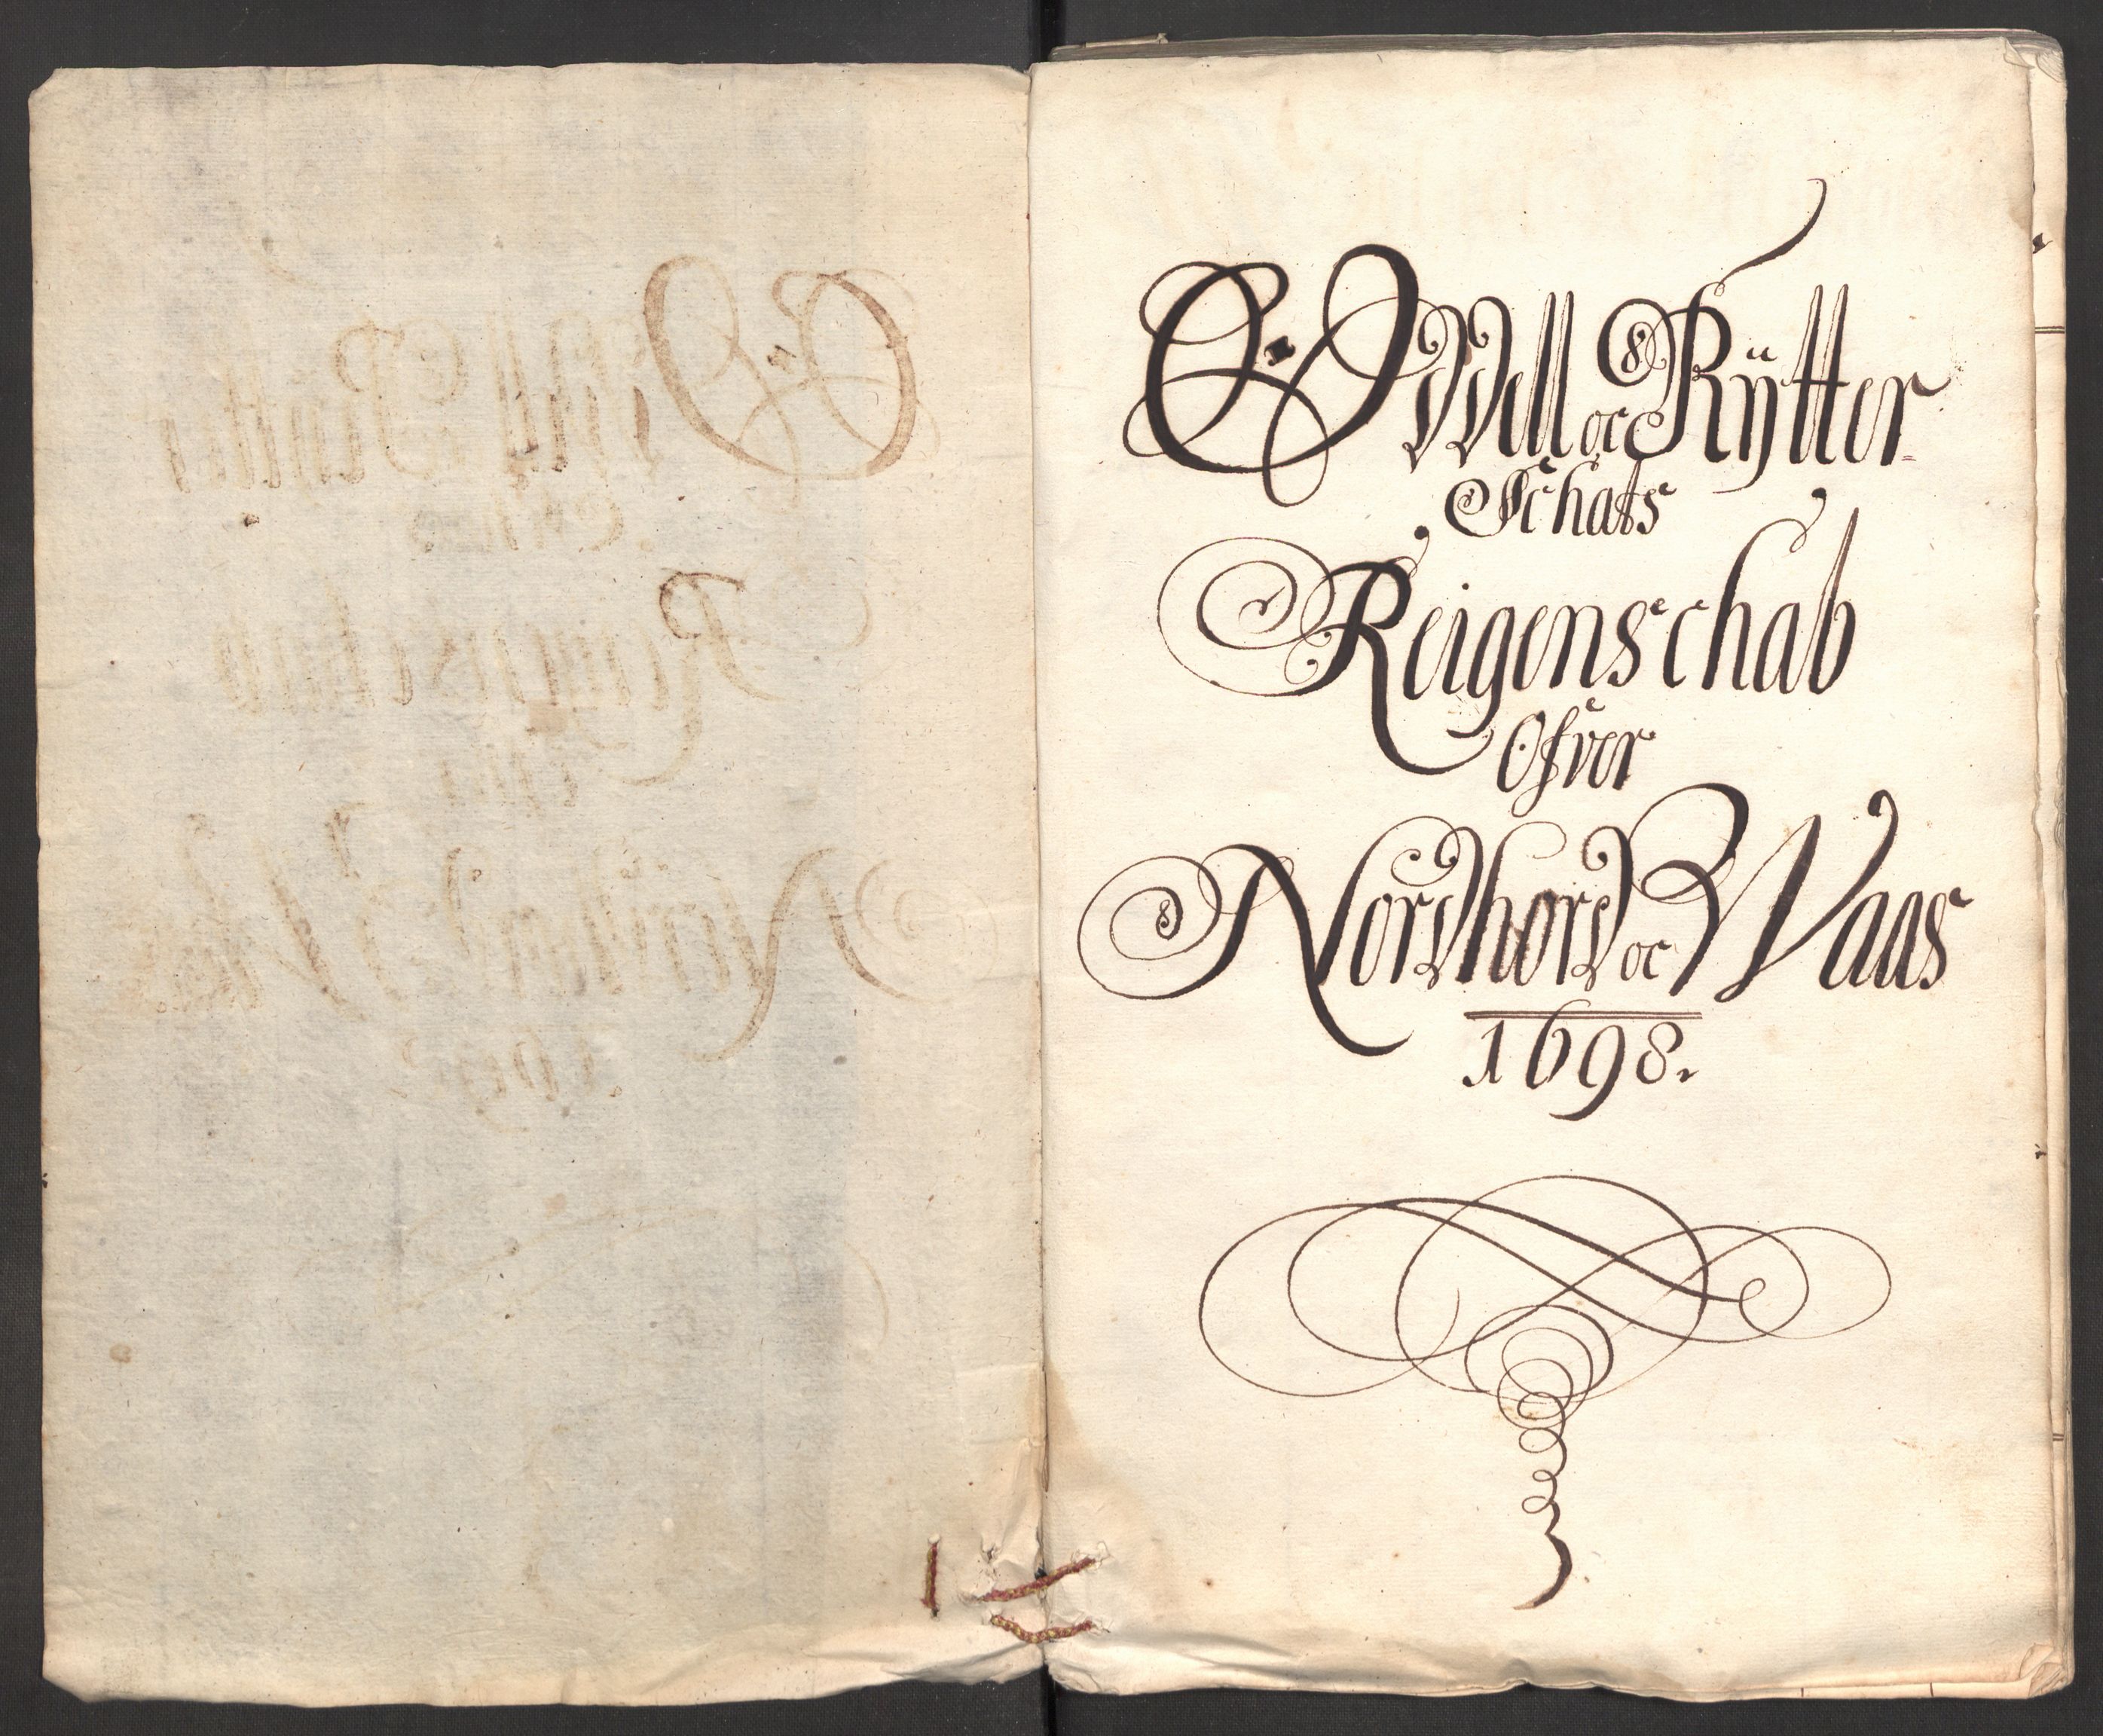 Odell oc Rÿtter-
Schats
Reigenschab
Ofver
Nordhord oc Waas
1698.